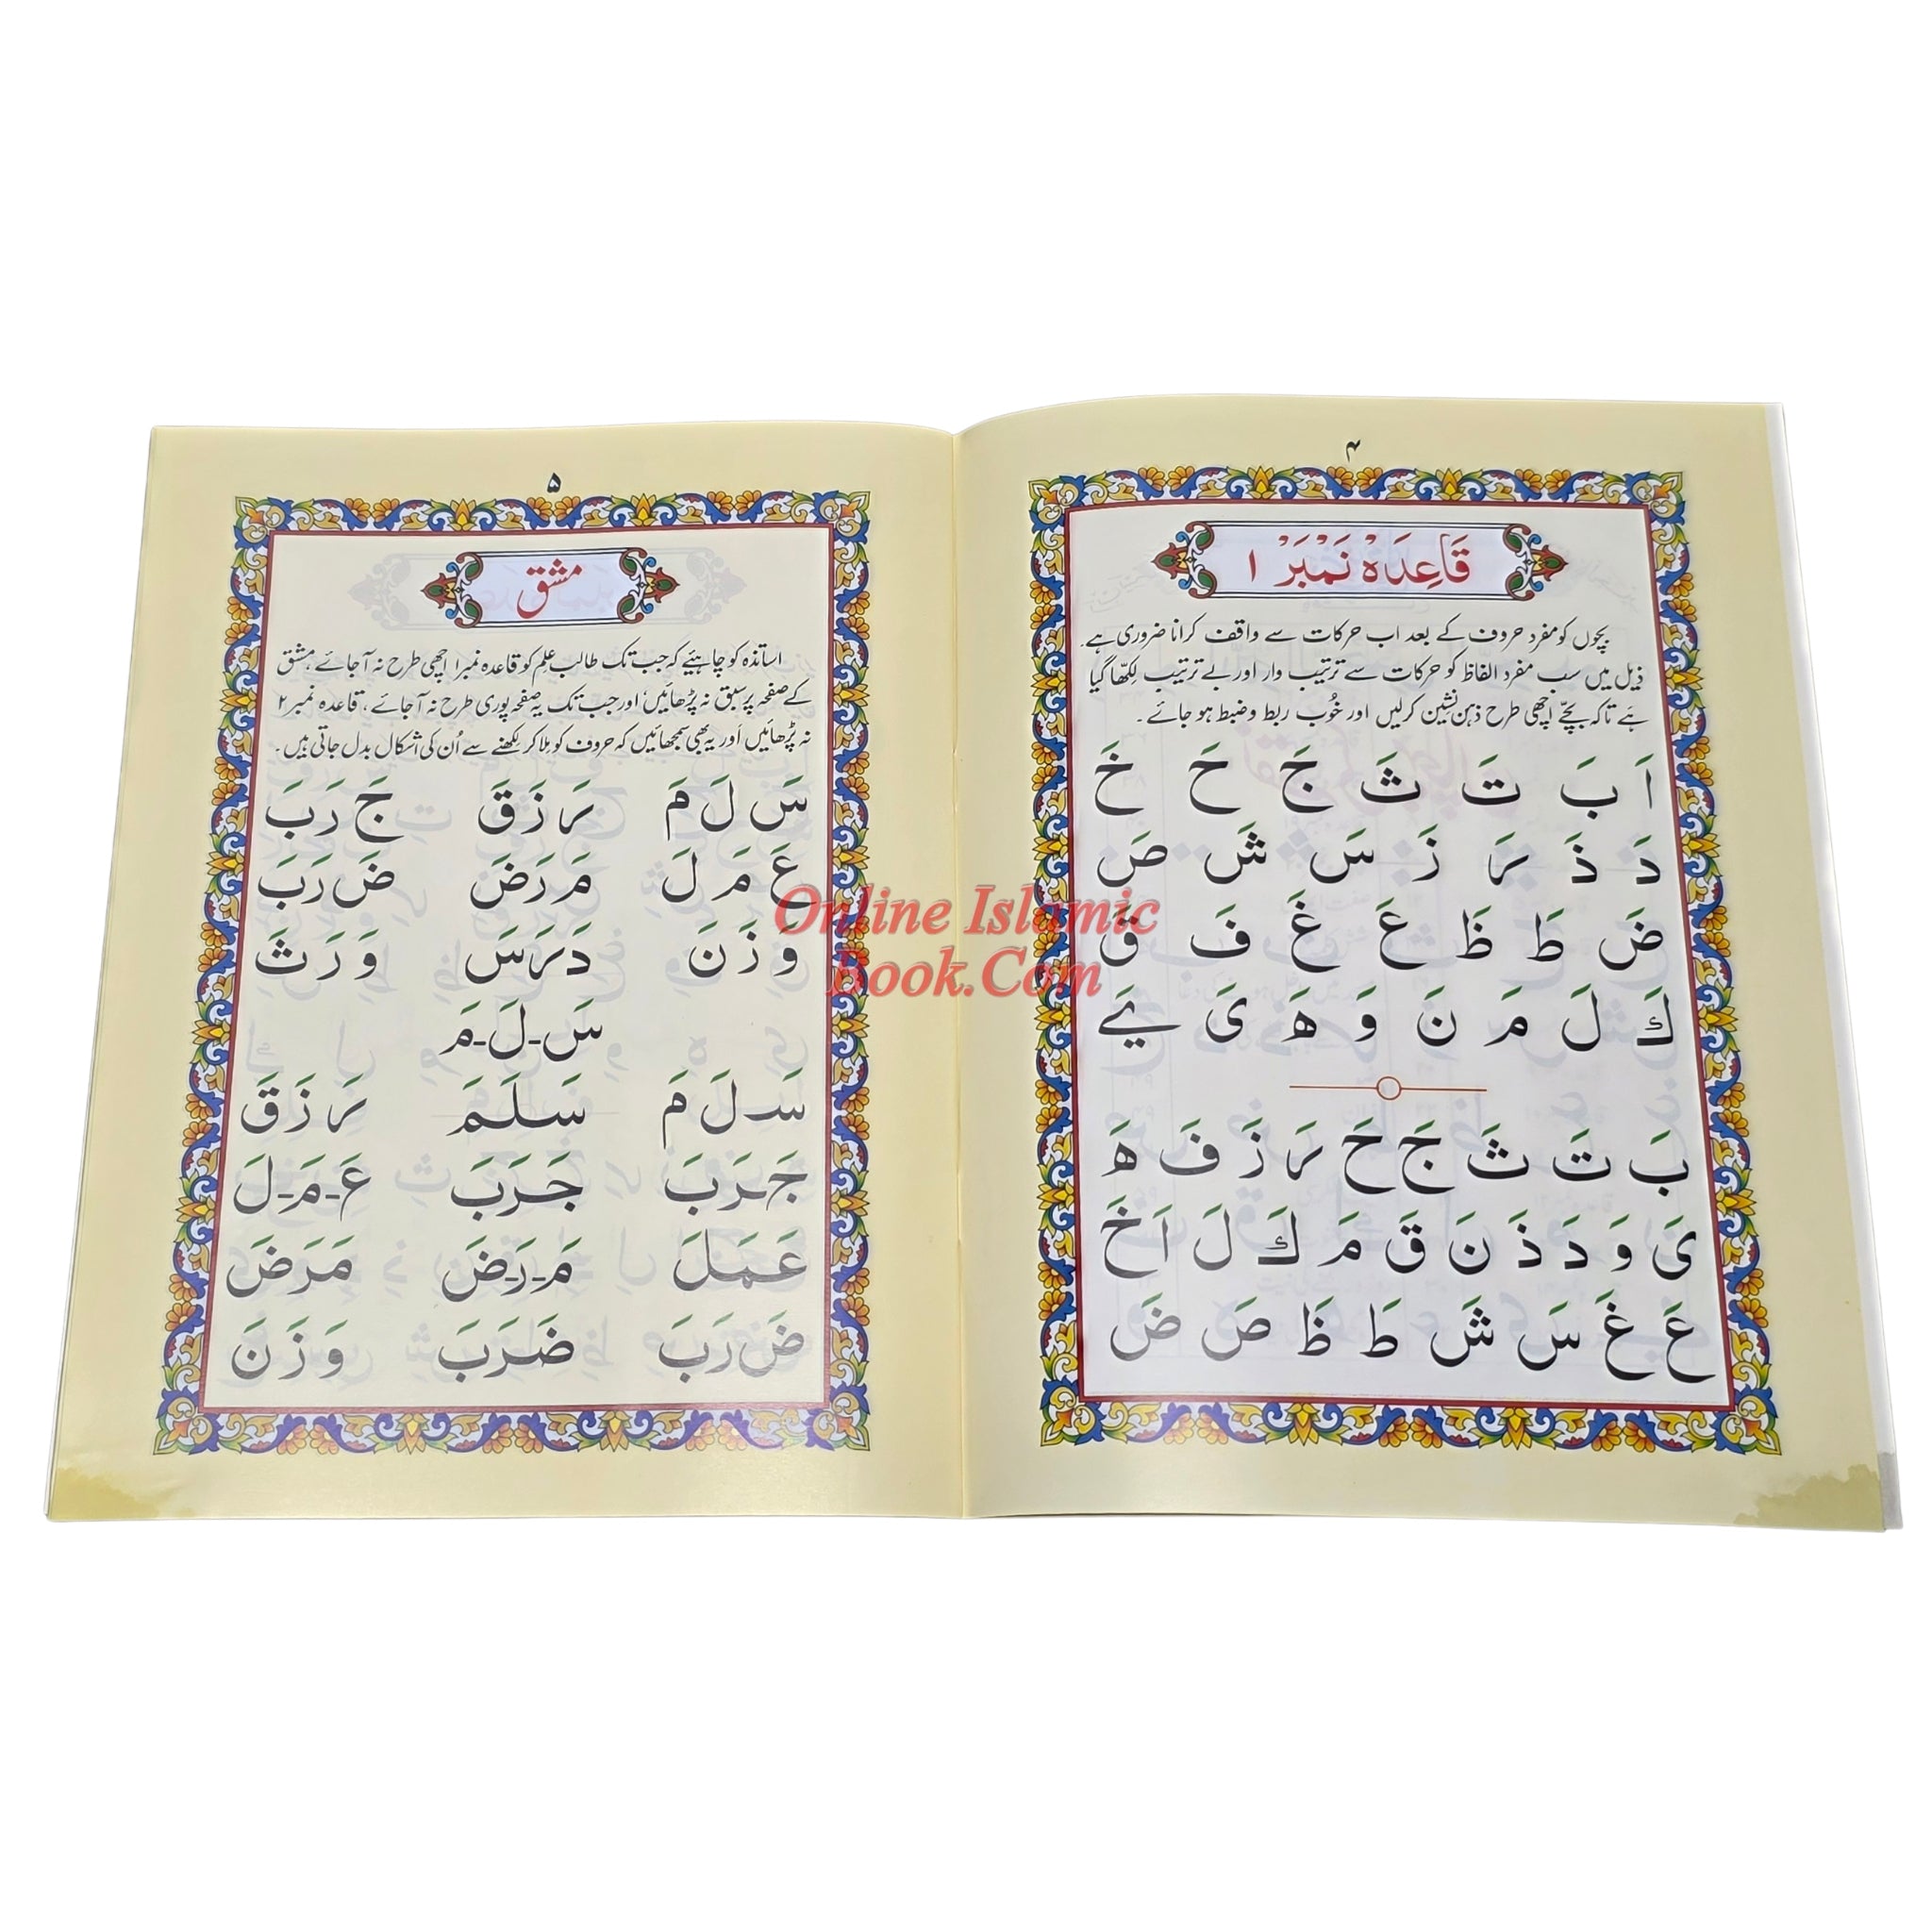 ۴
قَاعِدَہْ نَمْبَرْ ۱
بچوں کو مفرد حروف کے بعد اب حرکات سے واقف کرانا ضروری ہے۔
ذیل میں سب مفرد الفاظ کو حرکات سے ترتیب وار اور بے ترتیب لکھا گیا
ہے تاکہ بچّے اچھی طرح ذہن نشین کرلیں اور خُوب ربط و ضبط ہو جائے۔
اَ بَ تَ ثَ جَ حَ خَ
دَ ذَ رَ زَ سَ شَ صَ
ضَ طَ ظَ عَ غَ فَ قَ
كَ لَ مَ نَ وَ هَ یَ یَے
بَ تَ ثَ جَ حَ رَ زَ فَ هَ
یَ وَ دَ ذَ نَ قَ مَ كَ لَ اَ خَ
عَ غَ سَ شَ طَ ظَ صَ ضَ
۵
مشق
اساتذہ کو چاہیئے کہ جب تک طالب علم کو قاعدہ نمبر ۱ اچھی طرح نہ آجائے، مشق
کے صفحہ پر سبق نہ پڑھائیں اور جب تک یہ صفحہ پوری طرح نہ آجائے، قاعدہ نمبر ۲
نہ پڑھائیں اور یہ بھی سمجھائیں کہ حروف کو ملا کر لکھنے سے اُن کی اشکال بدل جاتی ہیں۔
سَ لَ مَ رَ زَ قَ جَ رَ بَ
عَ مَ لَ مَ رَ ضَ ضَ رَ بَ
وَ زَ نَ دَ رَ سَ وَ رَ ثَ
سَ-لَ-مَ
سَـ لَ مَ سَلَمَ رَ زَ قَ
جَـ رَ بَ جَرَبَ عَ-مَ-لَ
عَمَلَ مَ-رَ-ضَ مَرَضَ
ضَ رَ بَ ضَرَبَ وَ زَ نَ
Online Islamic
Book.Com